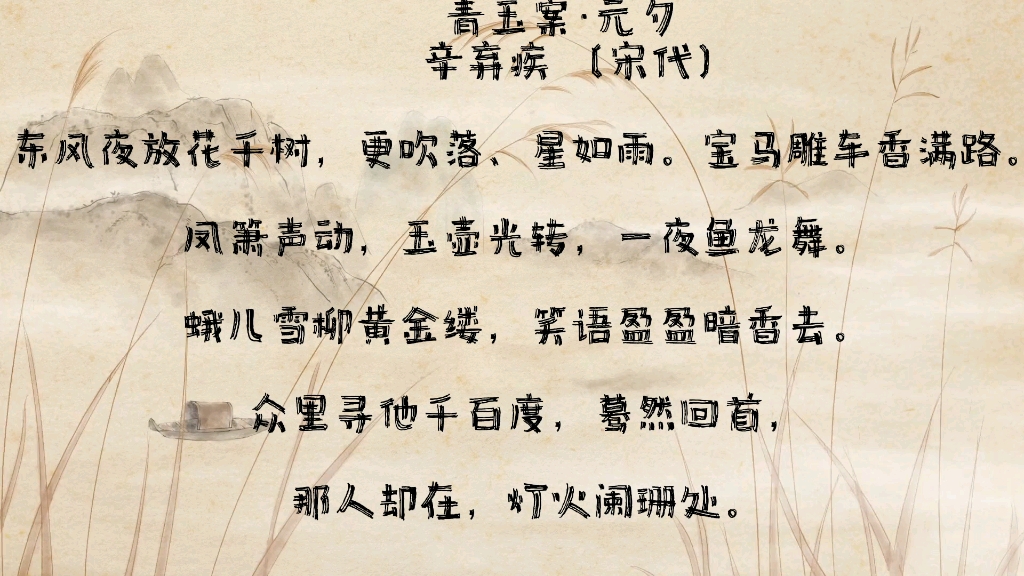 青玉案·元夕
辛弃疾 〔宋代〕
东风夜放花千树，更吹落、星如雨。宝马雕车香满路。
凤箫声动，玉壶光转，一夜鱼龙舞。
蛾儿雪柳黄金缕，笑语盈盈暗香去。
众里寻他千百度，蓦然回首，
那人却在，灯火阑珊处。